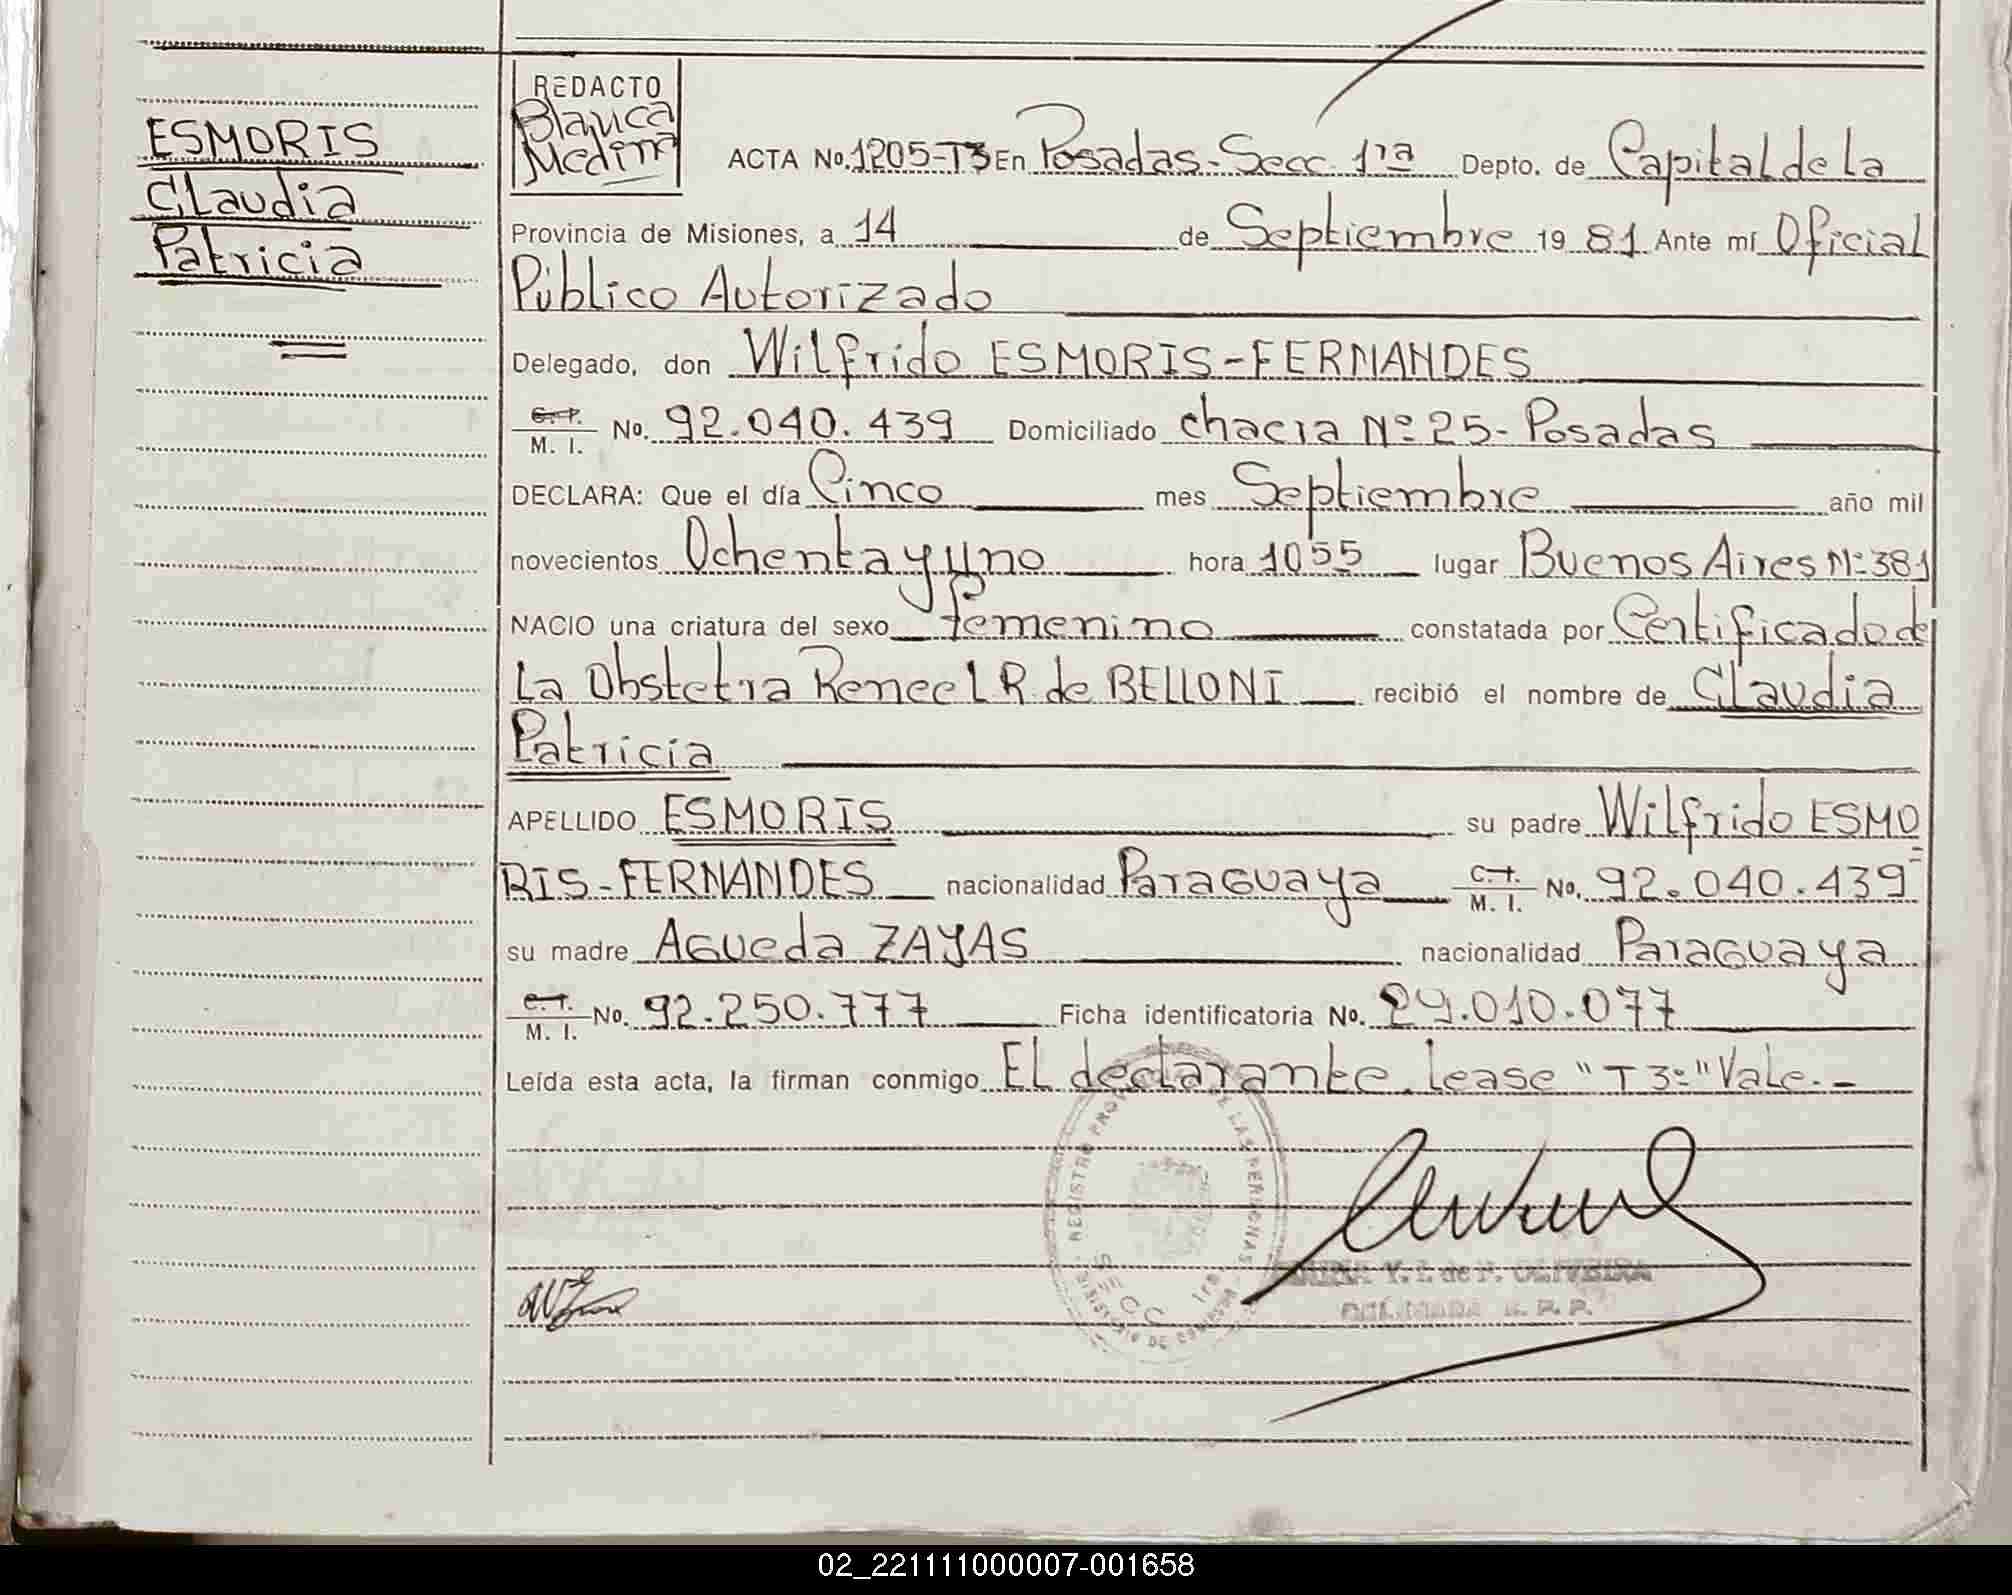 ESMORIS
Claudia
Patricia
REDACTO
Blanca
Medina
ACTA No. 1205-T3 En Posadas-Secc. 1ra Depto. de Capital de la
Provincia de Misiones, a 14 de Septiembre 19 81 Ante mí Oficial
Público Autorizado
Delegado, don Wilfrido ESMORIS-FERNANDES
C. I. M. I. No. 92.040.439 Domiciliado chacra Nº 25- Posadas
DECLARA: Que el día Cinco mes Septiembre año mil
novecientos Ochenta y uno hora 1055 lugar Buenos Aires Nº 381
NACIO una criatura del sexo femenino constatada por Certificado de
La Obstetra Renee L R. de BELLONI recibió el nombre de Claudia
Patricia
APELLIDO ESMORIS su padre Wilfrido ESMO
RIS-FERNANDES nacionalidad Paraguaya C. I. M. I. No. 92.040.439
su madre Agueda ZAYAS nacionalidad Paraguaya
C. I. M. I. No. 92.250.777 Ficha identificatoria No. 29.010.077
Leída esta acta, la firman conmigo El declarante. Lease "T3º" Vale.-
REGISTRO DE LAS PERSONAS
SECC 1ra
Y. I. de P. OLIVEIRA
02_221111000007-001658